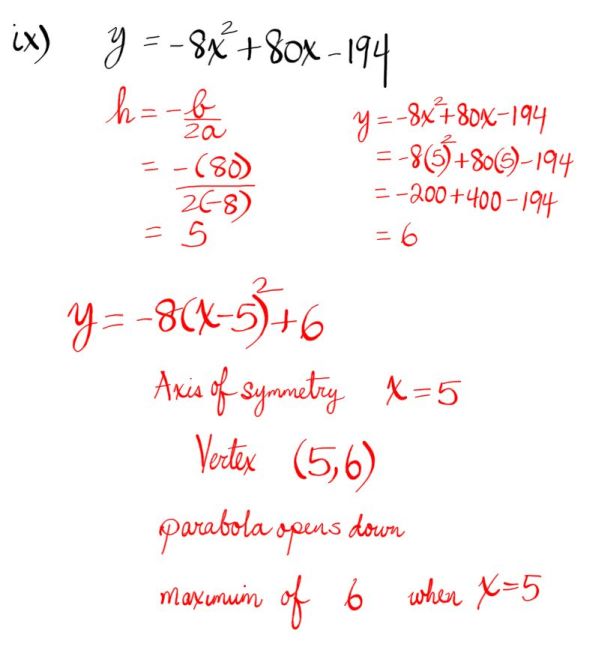 ix) y = -8x² + 80x - 194
h = -b/2a
= -(80)/2(-8)
= 5
y = -8x² + 80x - 194
= -8(5)² + 80(5) - 194
= -200 + 400 - 194
= 6
y = -8(x-5)² + 6
Axis of symmetry x = 5
Vertex (5,6)
parabola opens down
maximum of 6 when x = 5